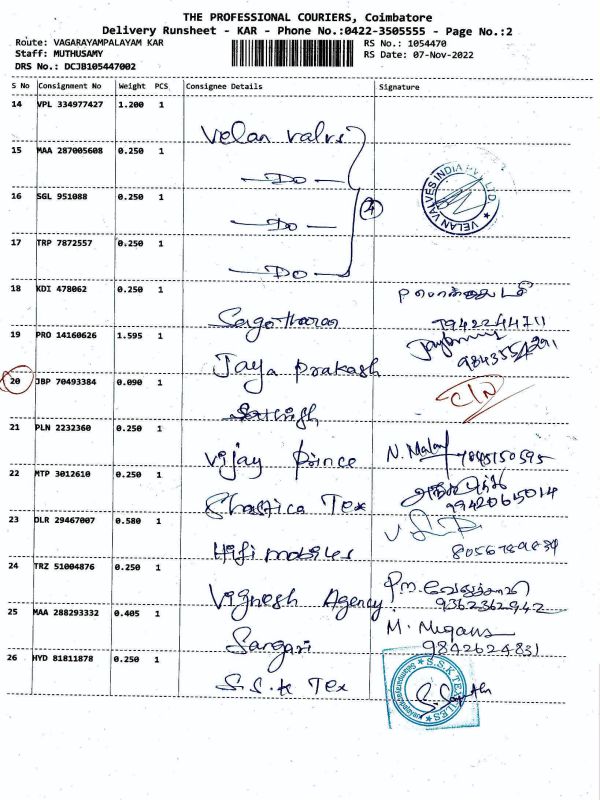 THE PROFESSIONAL COURIERS, Coimbatore
Delivery Runsheet - KAR - Phone No.:0422-3505555 - Page No.:2
Route: VAGARAYAMPALAYAM KAR RS No.: 1054470
Staff: MUTHUSAMY RS Date: 07-Nov-2022
DRS No.: DCJB105447002
S No Consignment No Weight PCS Consignee Details Signature
14 VPL 334977427 1.200 1 Velan Valvs
15 MAA 287005608 0.250 1 —Do—
VELAN VALVES INDIA PVT. LTD.
16 SGL 951088 0.250 1 —Do—
4
17 TRP 7872557 0.250 1 —Do—
18 KDI 478062 0.250 1
7942244711
19 PRO 14160626 1.595 1 Jaya Prakash
20 JBP 70493384 0.090 1 Sathish
C/N
21 PLN 2232360 0.250 1 Vijay Prince N. Malar
22 MTP 3012610 0.250 1 Tex
9942065014
23 DLR 29467007 0.580 1 Hifi mobiles
24 TRZ 51004876 0.250 1 Vignesh Agency
9362362942
25 MAA 288293332 0.405 1 M.
9842624831
26 HYD 81811878 0.250 1 S.S.K Tex